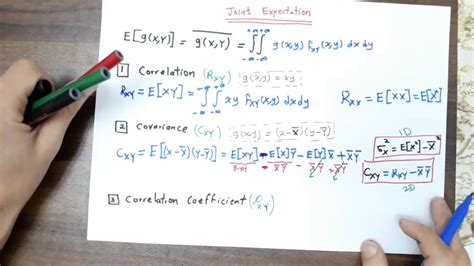 Joint Expertation
E[g(x,y)] = \overline{g(x,y)} = ∫_{-∞}^{+∞}∫_{-∞}^{+∞} g(x,y) f_{XY}(x,y) dx dy
1 Correlation (R_{XY}) g(x,y) = xy
R_{XY} = E[XY] = ∫_{-∞}^{∞}∫_{-∞}^{∞} xy f_{XY}(x,y) dx dy
R_{XX} = E[XX] = E[X²]
2 Covariance (C_{XY}) g(x,y) = (x-X̄)(y-Ȳ)
C_{XY} = E[(X-X̄)(Y-Ȳ)] = E[XY] - E[X]Ȳ - E[Y]X̄ + X̄Ȳ
R_{XY} X̄Ȳ X̄Ȳ
1D
σ_X² = E[X²] - X̄²
C_{XY} = R_{XY} - X̄Ȳ
2D
3 Correlation Coefficient (ρ_{XY})